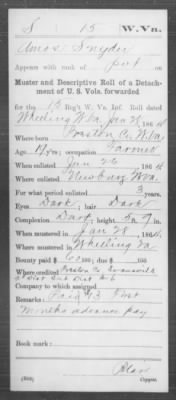 S 15 W. Va.
Amos Snyder
Appears with rank of Pvt on
Muster and Descriptive Roll of a Detach-
ment of U. S. Vols. forwarded
for the 15 Reg't W. Va. Inf. Roll dated
Wheeling W.Va. Jan 28, 1864
Where born Preston Co. W.Va.
Age y'rs; occupation Farmer
When enlisted Jan 26, 1864
Where enlisted Newburg W.Va.
For what period enlisted 3 years.
Eyes Dark; hair Dark
Complexion Dark; ft. in.
When mustered in Jan 28, 1864
Where mustered in Wheeling Va
Bounty paid $ 60; due $
Where credited Preston Co
2 Dist Sub Dist
Company to which assigned
Remarks: Paid $13 First
months advance pay
(339)
Copyist.